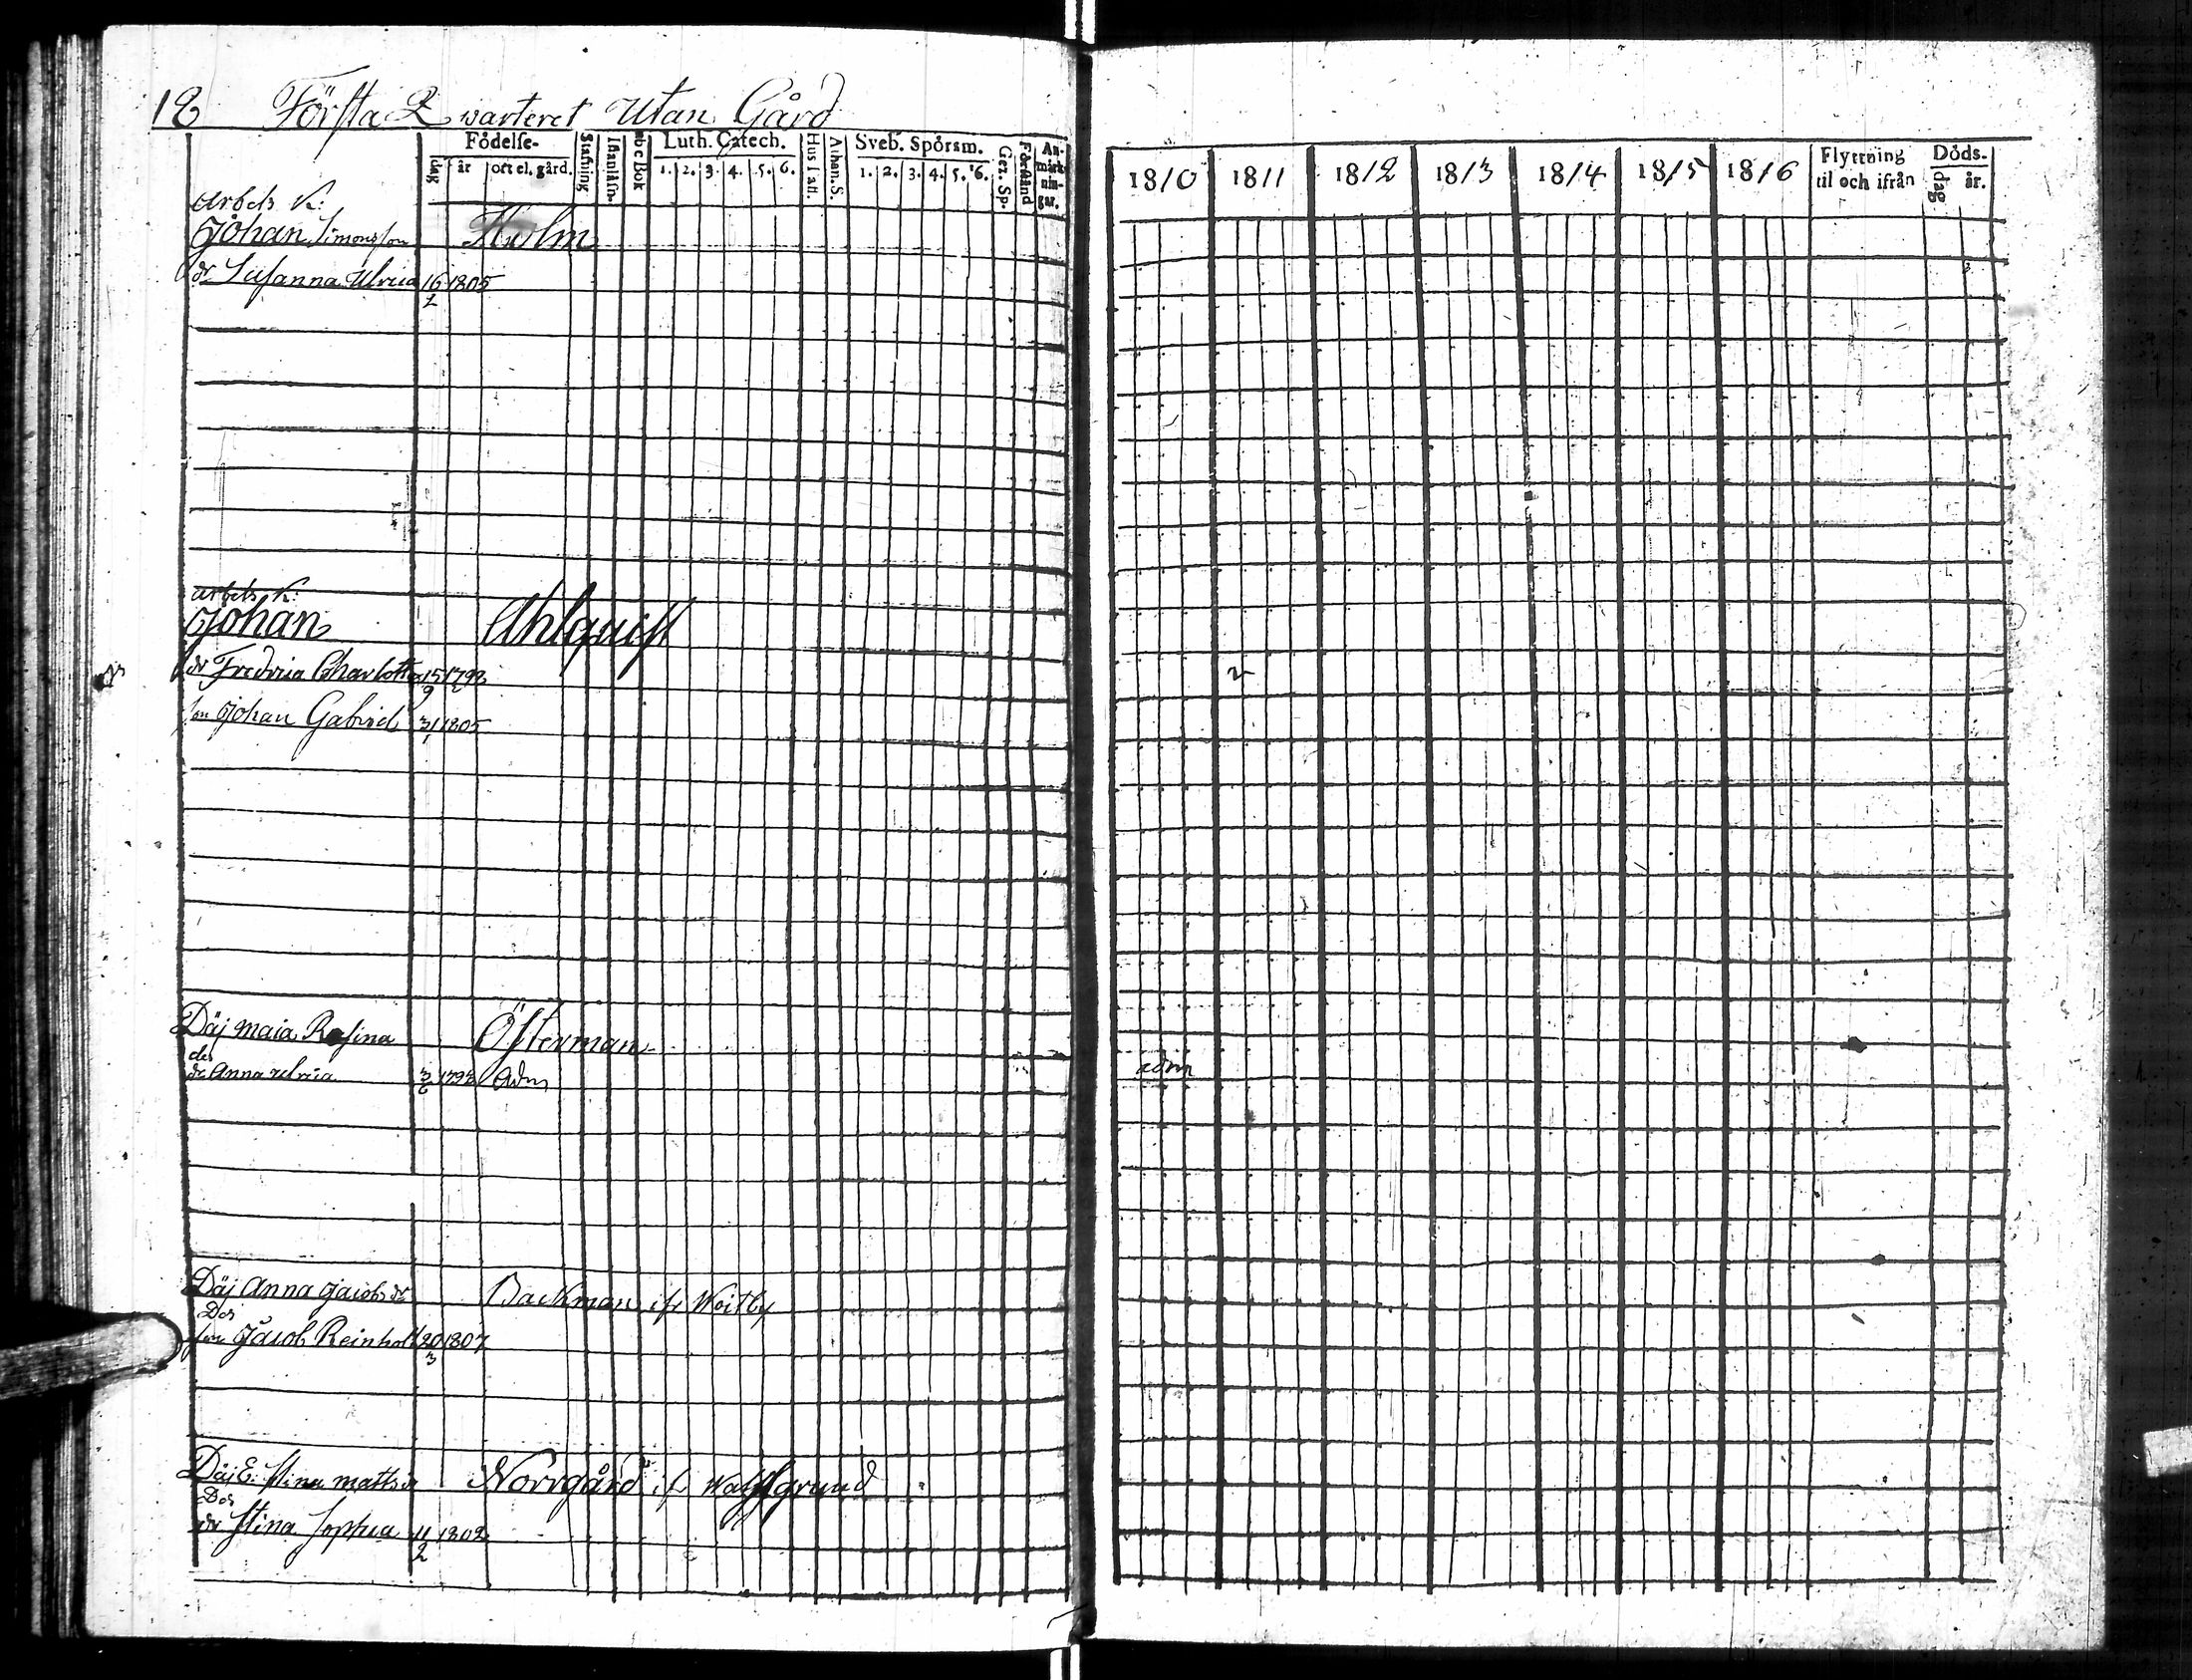 18 Första Qwarteret Utan Gård
Födelse- Stafning Luth. Catech. Sveb. Spörsm. Gez. Sp. Förstånd An-märk-nin-gar.
dag år ort el. gård. abc Bok 1. 2. 3. 4. 5. 6. Athan. S. 1. 2. 3. 4. 5. 6.
1810 1811 1812 1813 1814 1815 1816 Flyttning til och ifrån Döds- dag år.
Arbets K:
Johan Simonsson Holm
dr Susanna Ulrica 16 1805
Arbets K:
Johan Ahlquist
dr Fredrica Charlotta 15/9 1792 2
son Johan Gabriel 31/1 1805
Däj Maia Rosina Österman
des
dr Anna Ulrica 1793 Adm adm
Däj Anna Jacobs dr Backman ifr Woitby
Des
son Jacob Reinholt 20/3 1807
Däj E: Stina Matts dr Norrgård ifr Walssgrund
Des
dr Stina Sophia 11/2 1802